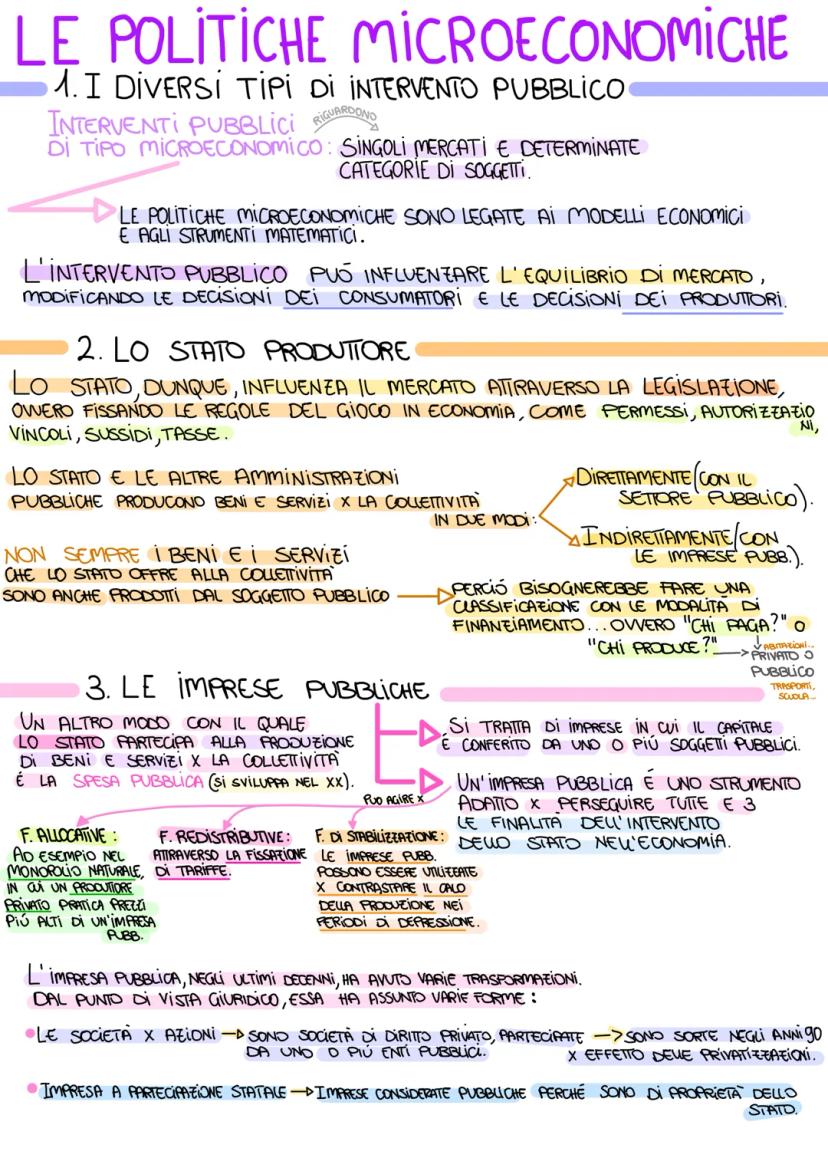 LE POLITICHE MICROECONOMICHE
1. I DIVERSI TIPI DI INTERVENTO PUBBLICO
INTERVENTI PUBBLICI RIGUARDONO
DI TIPO MICROECONOMICO: SINGOLI MERCATI E DETERMINATE
CATEGORIE DI SOGGETTI.
LE POLITICHE MICROECONOMICHE SONO LEGATE AI MODELLI ECONOMICI
E AGLI STRUMENTI MATEMATICI.
L'INTERVENTO PUBBLICO PUÓ INFLUENZARE L'EQUILIBRIO DI MERCATO,
MODIFICANDO LE DECISIONI DEI CONSUMATORI E LE DECISIONI DEI PRODUTTORI.
2. LO STATO PRODUTTORE
LO STATO, DUNQUE, INFLUENZA IL MERCATO ATTRAVERSO LA LEGISLAZIONE,
OVVERO FISSANDO LE REGOLE DEL GIOCO IN ECONOMIA, COME PERMESSI, AUTORIZZAZIO
NI,
VINCOLI, SUSSIDI, TASSE.
LO STATO E LE ALTRE AMMINISTRAZIONI
PUBBLICHE PRODUCONO BENI E SERVIZI X LA COLLETTIVITÀ
IN DUE MODI:
DIRETTAMENTE (CON IL
SETTORE PUBBLICO).
INDIRETTAMENTE (CON
LE IMPRESE PUBB.).
NON SEMPRE I BENI E I SERVIZI
CHE LO STATO OFFRE ALLA COLLETTIVITÀ
SONO ANCHE PRODOTTI DAL SOGGETTO PUBBLICO
PERCIÓ BISOGNEREBBE FARE UNA
CLASSIFICAZIONE CON LE MODALITÀ DI
FINANZIAMENTO... OVVERO "CHI PAGA?" O
"CHI PRODUCE?"
ABITAZIONI...
PRIVATO O
PUBBLICO
TRASPORTI,
SCUOLA...
3. LE IMPRESE PUBBLICHE
UN ALTRO MODO CON IL QUALE
LO STATO PARTECIPA ALLA PRODUZIONE
DI BENI E SERVIZI X LA COLLETTIVITÀ
É LA SPESA PUBBLICA (SI SVILUPPA NEL XX).
SI TRATTA DI IMPRESE IN CUI IL CAPITALE
É CONFERITO DA UNO O PIÚ SOGGETTI PUBBLICI.
UN'IMPRESA PUBBLICA É UNO STRUMENTO
ADATTO X PERSEGUIRE TUTTE E 3
LE FINALITÀ DELL'INTERVENTO
DELLO STATO NELL'ECONOMIA.
PUÓ AGIRE X
F. ALLOCATIVE:
AD ESEMPIO NEL
MONOPOLIO NATURALE,
IN CUI UN PRODUTTORE
PRIVATO PRATICA PREZZI
PIÚ ALTI DI UN'IMPRESA
PUBB.
F. REDISTRIBUTIVE:
ATTRAVERSO LA FISSAZIONE
DI TARIFFE.
F. DI STABILIZZAZIONE:
LE IMPRESE PUBB.
POSSONO ESSERE UTILIZZATE
X CONTRASTARE IL CALO
DELLA PRODUZIONE NEI
PERIODI DI DEPRESSIONE.
L'IMPRESA PUBBLICA, NEGLI ULTIMI DECENNI, HA AVUTO VARIE TRASFORMAZIONI.
DAL PUNTO DI VISTA GIURIDICO, ESSA HA ASSUNTO VARIE FORME:
• LE SOCIETÀ X AZIONI → SONO SOCIETÀ DI DIRITTO PRIVATO, PARTECIPATE → SONO SORTE NEGLI ANNI 90
DA UNO O PIÚ ENTI PUBBLICI. X EFFETTO DELLE PRIVATIZZAZIONI.
• IMPRESA A PARTECIPAZIONE STATALE → IMPRESE CONSIDERATE PUBBLICHE PERCHÉ SONO DI PROPRIETÀ DELLO
STATO.